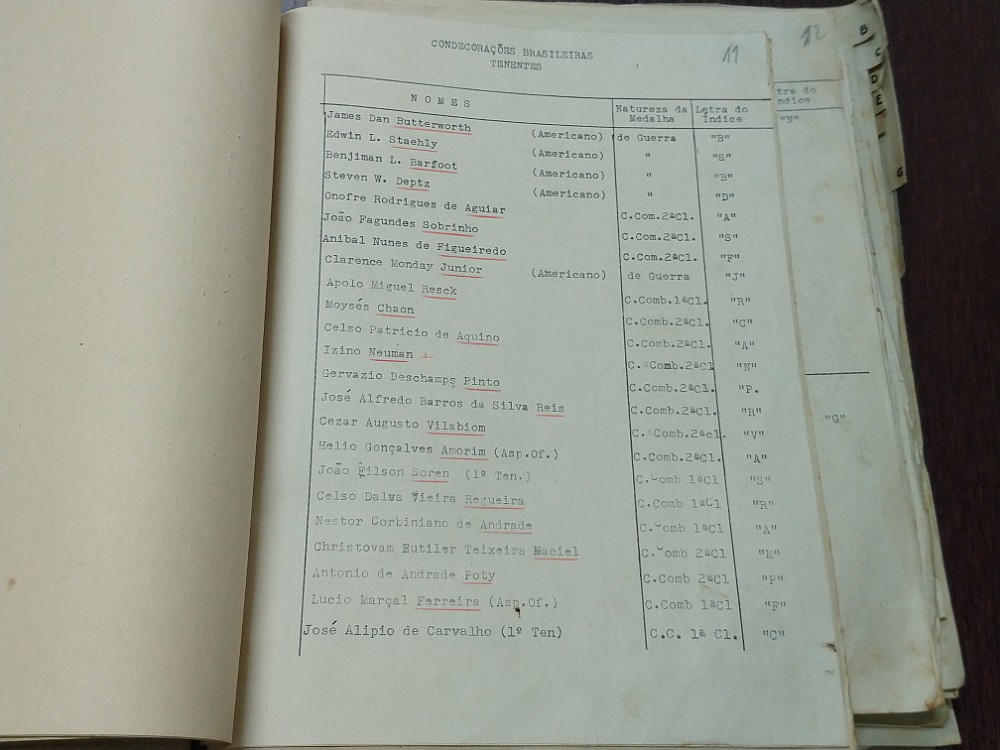 CONDECORAÇÕES BRASILEIRAS
TENENTES
11
12
NOMES Natureza da Medalha Letra do Índice
James Dan Butterworth (Americano) de Guerra "B"
Edwin L. Staehly (Americano) " "S"
Benjiman L. Barfoot (Americano) " "B"
Steven W. Deptz (Americano) " "D"
Onofre Rodrigues de Aguiar C.Com.2ªCl. "A"
João Fagundes Sobrinho C.Com.2ªCl. "S"
Anibal Nunes de Figueiredo C.Com.2ªCl. "F"
Clarence Monday Junior (Americano) de Guerra "J"
Apolo Miguel Resck C.Comb.1ªCl. "R"
Moysés Chaon C.Comb.2ªCl. "C"
Celso Patricio de Aquino C.Comb.2ªCl. "A"
Izino Neuman C. Comb.2ªCl "N"
Gervazio Deschamps Pinto C.Comb.2ªCl. "P.
José Alfredo Barros da Silva Reis C.Comb.2ªCl. "R"
Cezar Augusto Vilabiom C. Comb.2ªcl. "V"
Helio Gonçalves Amorim (Asp.Of.) C.Comb.2ªCl. "A"
João Filson Soren (1º Ten.) C.Comb 1ªCl "S"
Celso Dalwa Vieira Regueira C.Comb 1ªCl "R"
Nestor Corbiniano de Andrade C.Comb 1ªCl "A"
Christovam Eutiler Teixeira Maciel C.Comb 2ªCl "M"
Antonio de Andrade Poty C.Comb 2ªCl "P"
Lucio Marçal Ferreira (Asp.Of.) C.Comb 1ªCl "F"
José Alipio de Carvalho (1º Ten) C.C. 1ª Cl. "C"
tra do
ndice
"N"
"G"
B
C
D
E
F
G